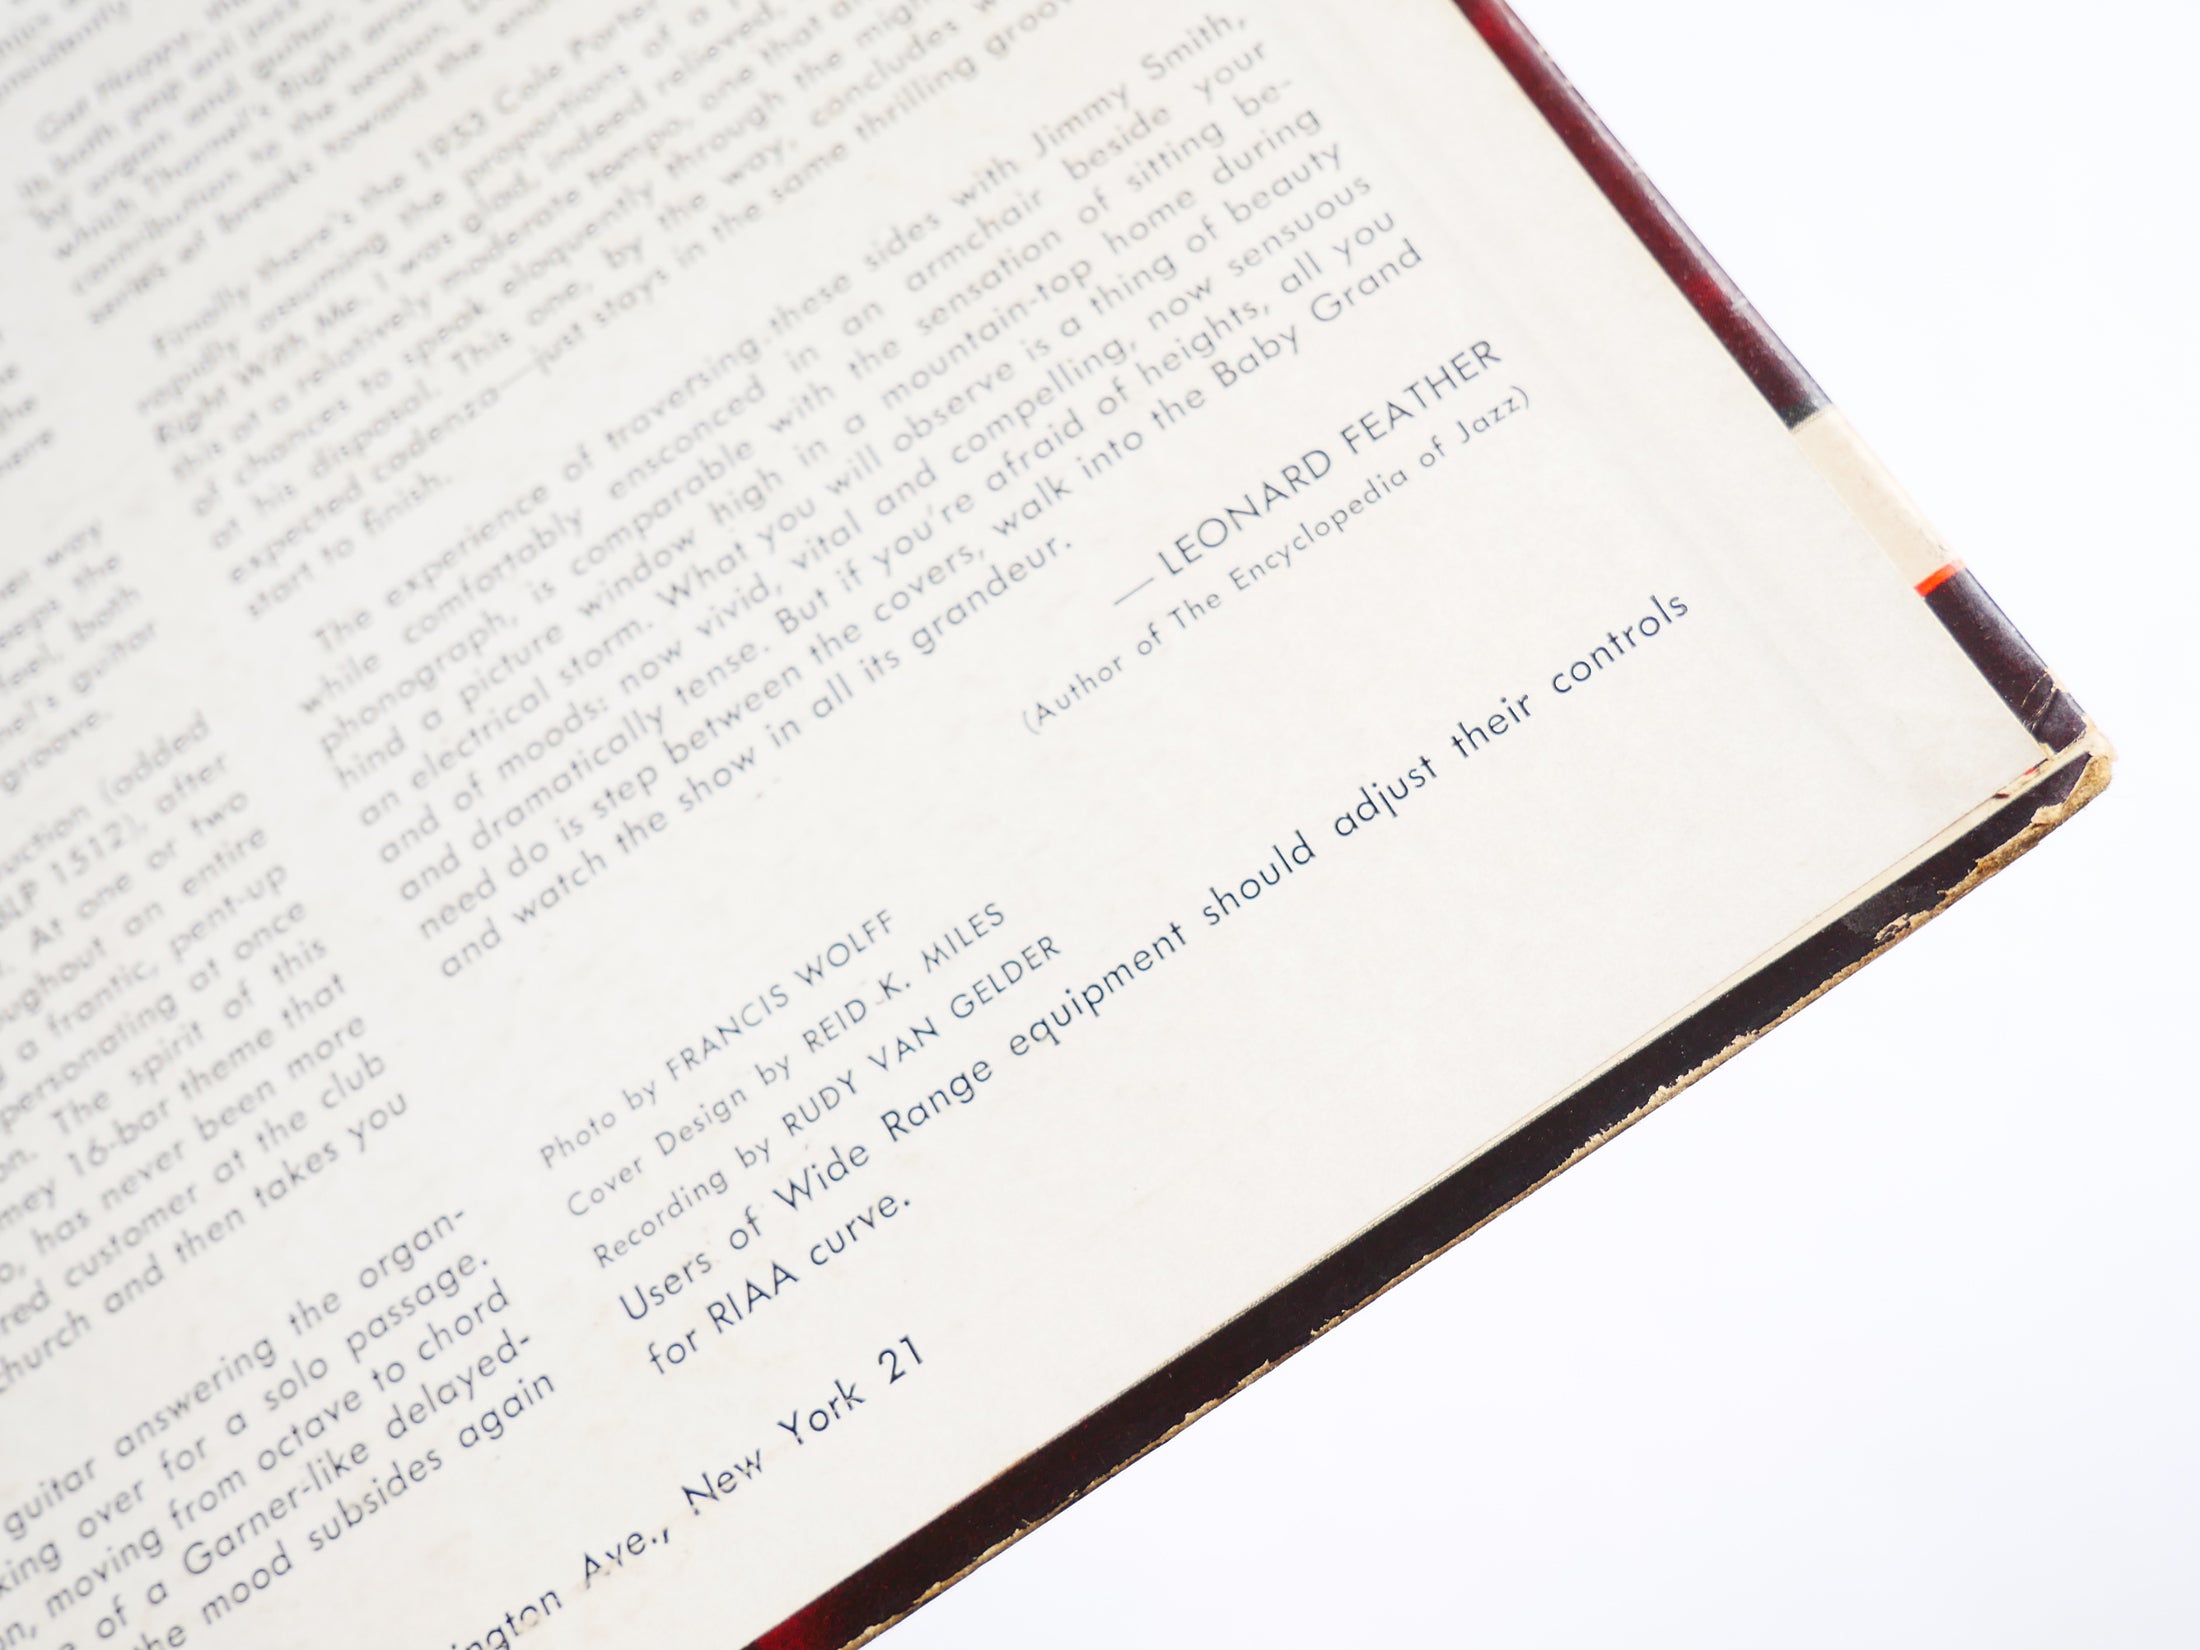 Get Happy,
its both pop and jazz
by organ and guitar,
which Thornel's flight
contribution to the session.
series of breaks toward the end
Finally there's the 1953 Cole Porter
rapidly assuming the proportions of a
Right With Me. I was glad, indeed relieved,
this at a relatively moderate tempo, one that
of chances to speak eloquently through the
at his disposal. This one, by the way, concludes
expected cadenza—just stays in the same thrilling groove
start to finish.
The experience of traversing these sides with Jimmy Smith,
while comfortably ensconced in an armchair beside your
phonograph, is comparable with the sensation of sitting be-
hind a picture window high in a mountain-top home during
an electrical storm. What you will observe is a thing of beauty
and of moods: now vivid, vital and compelling, now sensuous
and dramatically tense. But if you're afraid of heights, all you
need do is step between the covers, walk into the Baby Grand
and watch the show in all its grandeur.
— LEONARD FEATHER
(Author of The Encyclopedia of Jazz)
way
the
feel, both
guitar
groove.
(added
BLP 1512), after
At one or two
an entire
a frantic, pent-up
at once
The spirit of this
16-bar theme that
has never been more
customer at the club
church and then takes you
guitar answering the organ-
over for a solo passage.
moving from octave to chord
of a Garner-like delayed-
the mood subsides again
Photo by FRANCIS WOLFF
Cover Design by REID K. MILES
Recording by RUDY VAN GELDER
Users of Wide Range equipment should adjust their controls
for RIAA curve.
Ave., New York 21